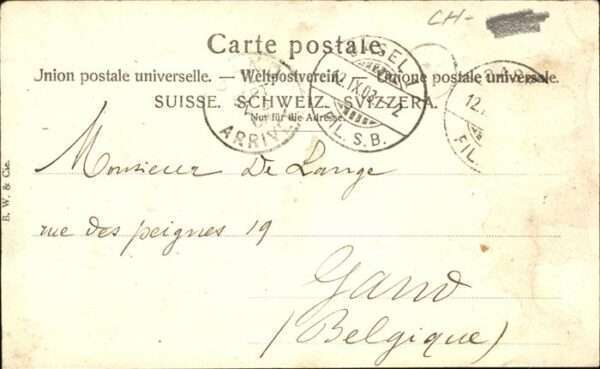 CH-
Carte postale.
Union postale universelle. — Weltpostverein. — Unione postale universale.
SUISSE. SCHWEIZ. SVIZZERA.
Nur für die Adresse.
ARRIV
BASEL 1
12.IX.03.
FIL. S.B.
12.
FIL.
Monsieur De Lange
rue des peignes 19
Gand
(Belgique)
B. W. & Cie.